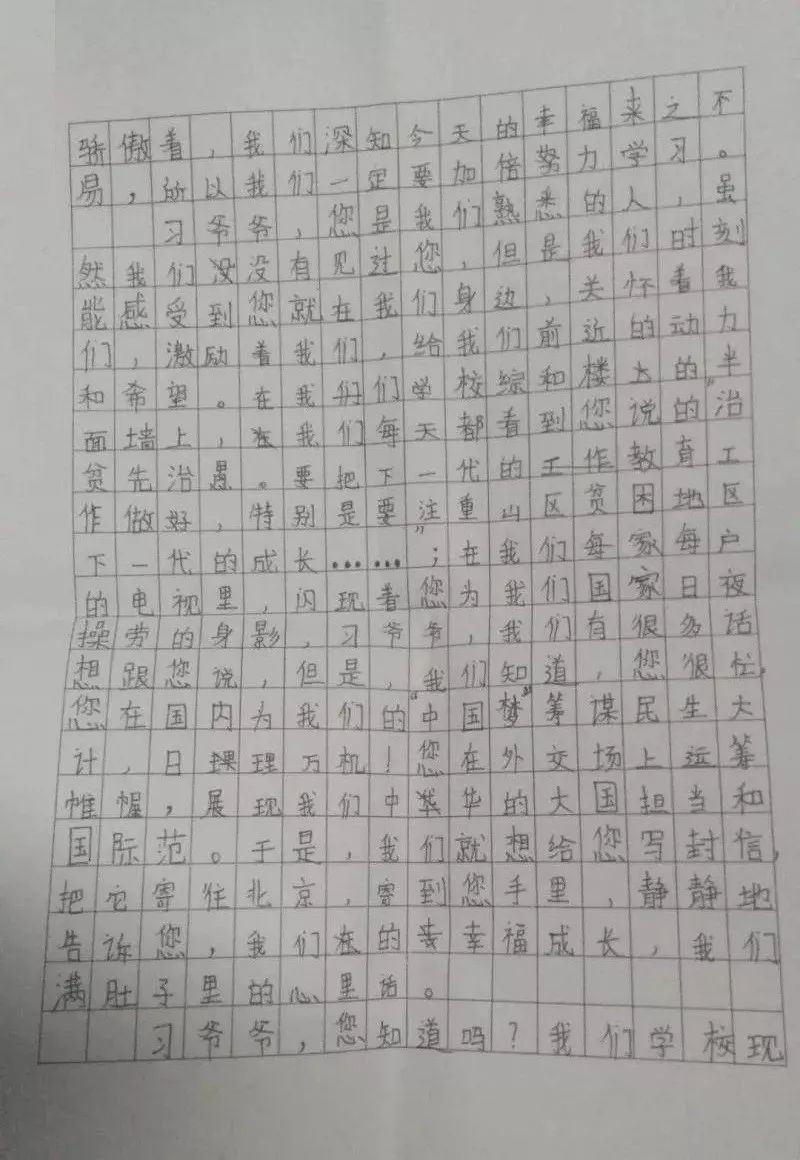 骄傲着，我们深知今天的幸福来之不
易，所以我们一定要加倍努力学习。
习爷爷，您是我们熟悉的人，虽
然我们没没有见过您，但是我们时刻
能感受到您就在我们身边，关怀着我
们，激励着我们，给我们前近的动力
和希望。在我们们学校综和楼大的半
面墙上，在我们每天都看到您说的“治
贫先治愚。要把下一代的工作教育工
作做好，特别是要注重山区贫困地区
下一代的成长……”；在我们每家每户
的电视里，闪现着您为我们国家日夜
操劳的身影，习爷爷，我们有很多话
想跟您说，但是，我们知道，您很忙，
您在国内为我们的“中国梦”筹谋民生大
计，日理万机！您在外交场上运筹
帷幄，展现我们中华的大国担当和
国际范。于是，我们就想给您写封信，
把它寄往北京，寄到您手里，静静地
告诉您，我们在的幸福成长，我们
满肚子里的心里话。
习爷爷，您知道吗？我们学校现